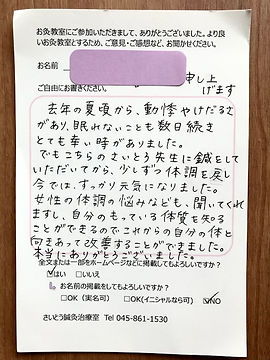 お灸教室にご参加いただきまして、ありがとうございました。より良
いお灸教室とするため、ご意見・ご感想など、お聞かせください。
お名前
申し上
ご自由にお書きください。
げます
去年の夏頃から、動悸やけだるさ
があり、眠れないことも数日続き
とても辛い時がありました。
でもこちらのさいとう先生に鍼をして
いただいてから、少しずつ体調を戻し
今では、すっかり元気になりました。
女性の体調の悩みなども、聞いてくれ
ますし、自分のもっている体質を知る
ことができるのでこれからの自分の体と
向きあって改善することができました。
本当にありがとうございました。
全文または一部をホームページなどに掲載してもよろしいですか?
☑はい □いいえ
お名前の掲載をしてもよろしいですか?
□OK(実名可) □OK(イニシャルなら可) ☑NO
さいとう鍼灸治療室 Tel 045-861-1530